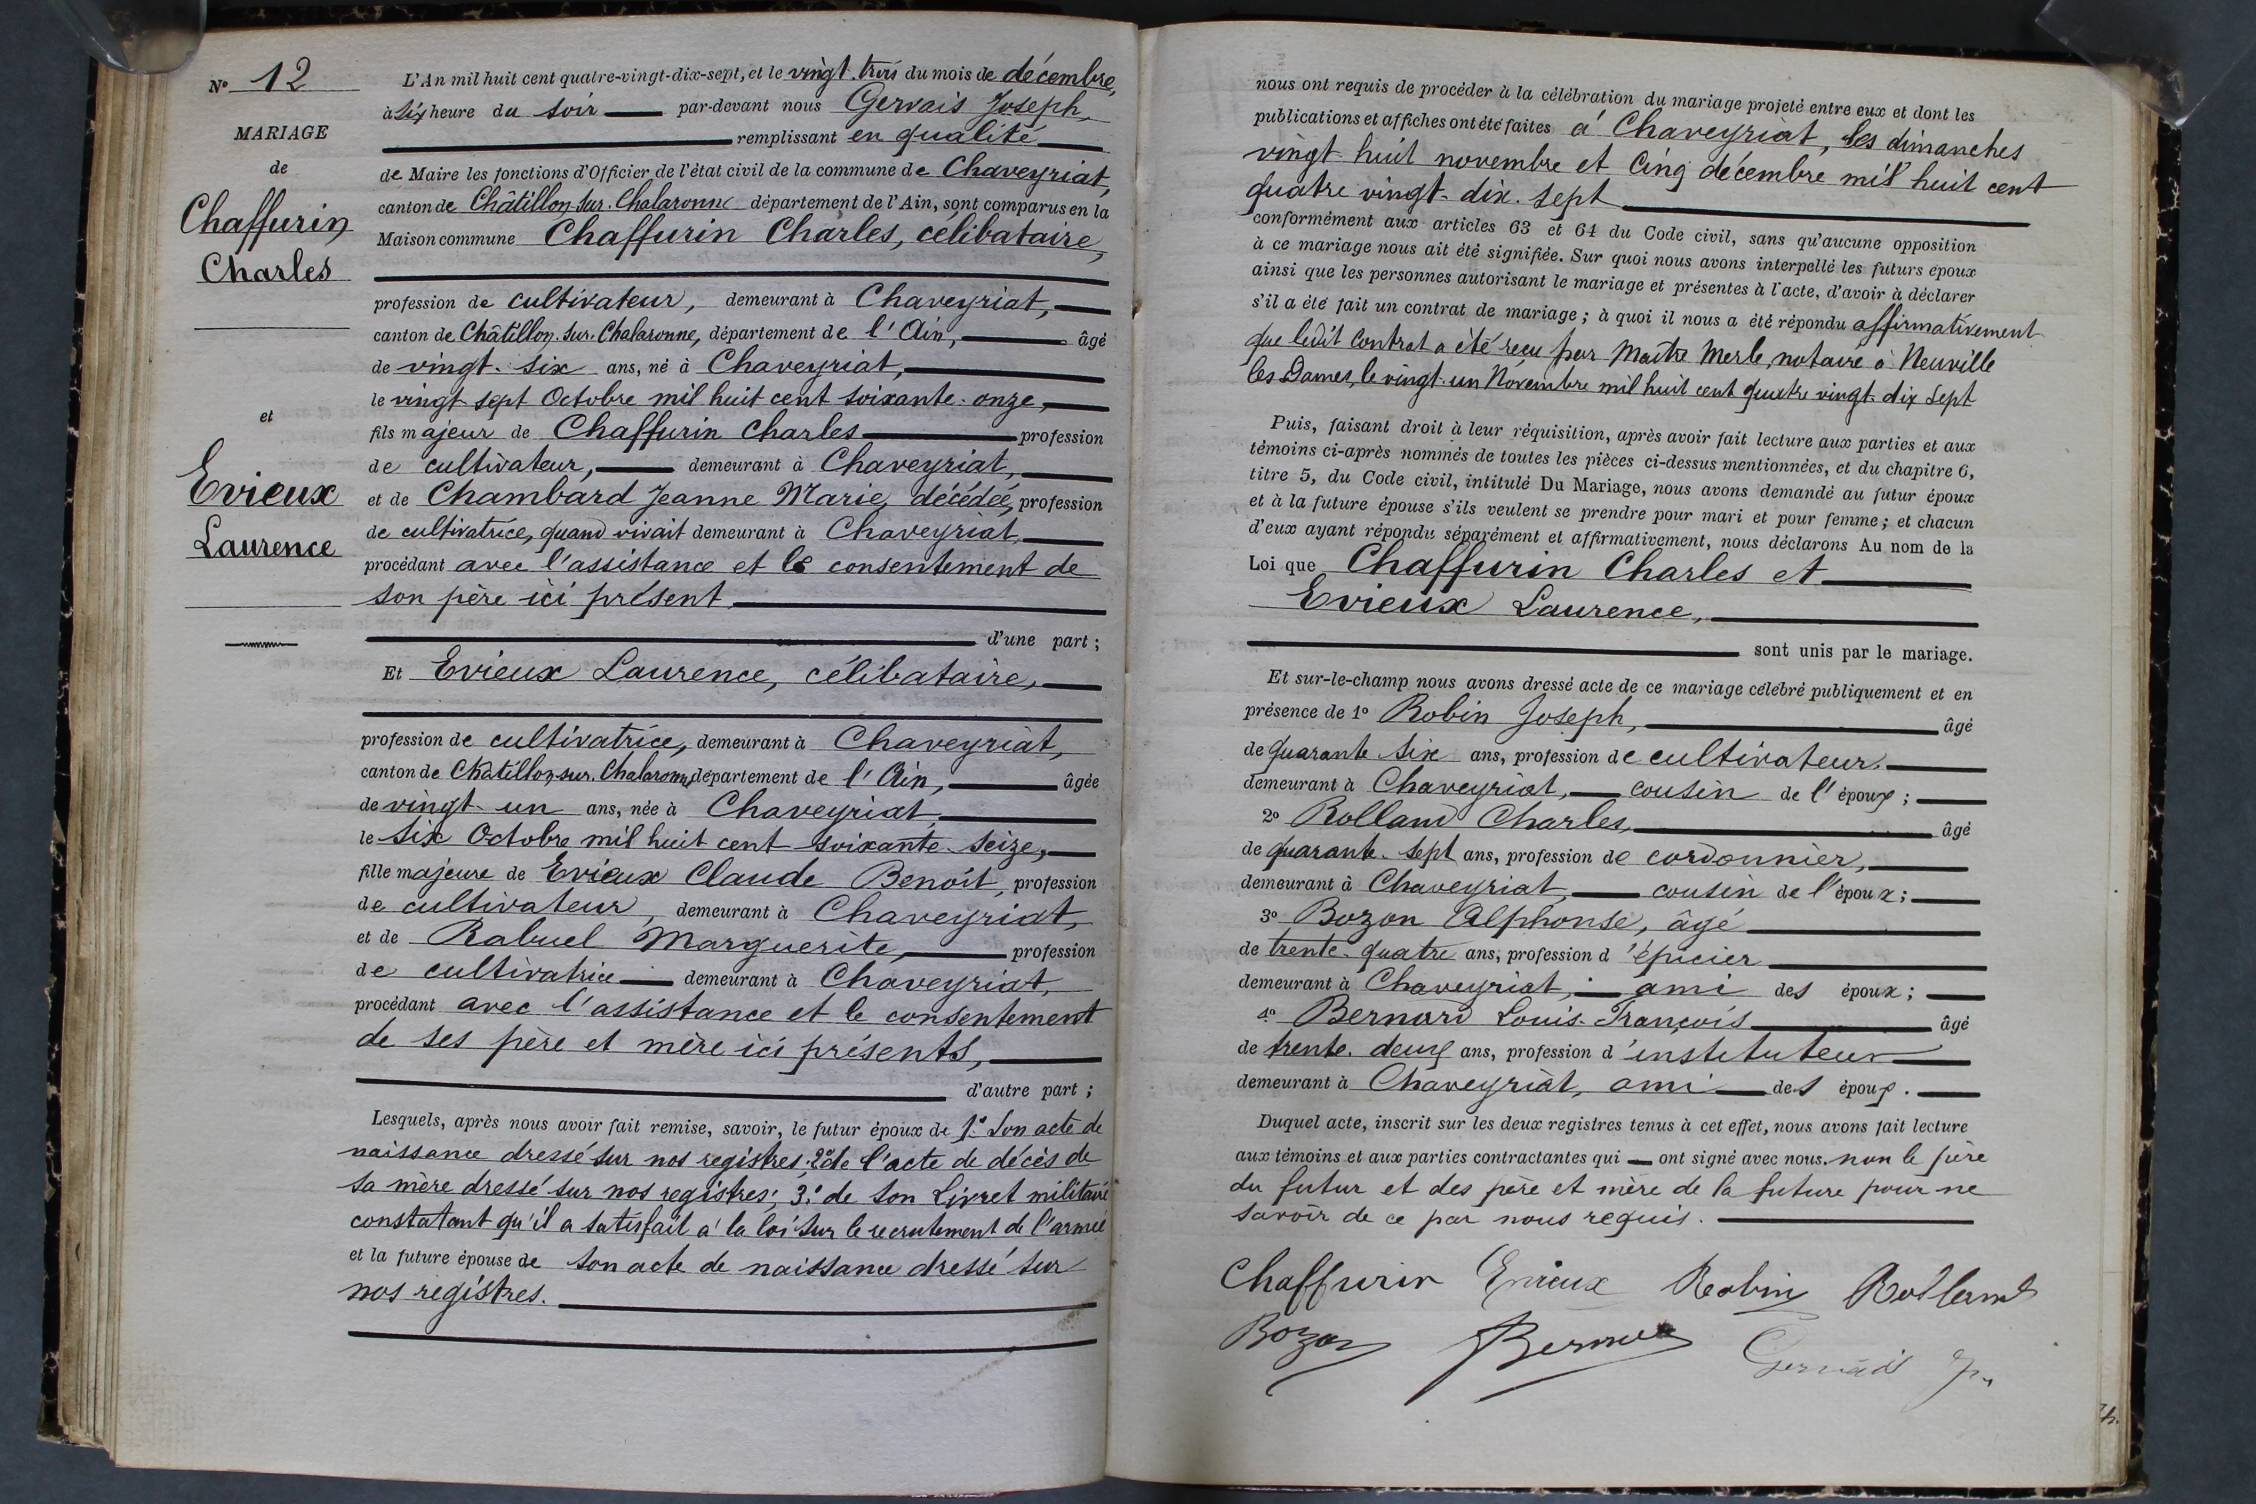 N° 12
MARIAGE
de
Chaffurin
Charles
et
Evieux
Laurence
L'An mil huit cent quatre-vingt-dix-sept, et le vingt-trois du mois de décembre,
à six heure du soir par-devant nous Gervais Joseph,
remplissant en qualité
de Maire les fonctions d'Officier de l'état civil de la commune de Chaveyriat,
canton de Châtillon-sur-Chalaronne département de l'Ain, sont comparus en la
Maison commune Chaffurin Charles, célibataire,
profession de cultivateur, demeurant à Chaveyriat,
canton de Châtillon-sur-Chalaronne, département de l'Ain, âgé
de vingt-six ans, né à Chaveyriat,
le vingt sept Octobre mil huit cent soixante-onze,
fils majeur de Chaffurin Charles profession
de cultivateur, demeurant à Chaveyriat,
et de Chambard Jeanne Marie, décédée, profession
de cultivatrice, quand vivait demeurant à Chaveyriat,
procédant avec l'assistance et le consentement de
son père ici présent
d'une part ;
Et Evieux Laurence, célibataire,
profession de cultivatrice, demeurant à Chaveyriat,
canton de Châtillon-sur-Chalaronne, département de l'Ain, âgée
de vingt-un ans, née à Chaveyriat,
le six Octobre mil huit cent soixante-seize,
fille majeure de Evieux Claude Benoît, profession
de cultivateur, demeurant à Chaveyriat,
et de Rabuel Marguerite, profession
de cultivatrice demeurant à Chaveyriat,
procédant avec l'assistance et le consentement
de ses père et mère ici présents,
d'autre part ;
Lesquels, après nous avoir fait remise, savoir, le futur époux de 1° son acte de
naissance dressé sur nos registres; 2° de l'acte de décès de
sa mère dressé sur nos registres; 3° de son Livret militaire
constatant qu'il a satisfait à la loi sur le recrutement de l'armée
et la future épouse de son acte de naissance dressé sur
nos registres.
nous ont requis de procéder à la célébration du mariage projeté entre eux et dont les
publications et affiches ont été faites à Chaveyriat, les dimanches
vingt-huit novembre et Cinq décembre mil huit cent
quatre vingt-dix-sept
conformément aux articles 63 et 64 du Code civil, sans qu'aucune opposition
à ce mariage nous ait été signifiée. Sur quoi nous avons interpellé les futurs époux
ainsi que les personnes autorisant le mariage et présentes à l'acte, d'avoir à déclarer
s'il a été fait un contrat de mariage ; à quoi il nous a été répondu affirmativement
que ledit contrat a été reçu par Maître Merle, notaire à Neuville
les Dames, le vingt-un Novembre mil huit cent quatre vingt-dix sept
Puis, faisant droit à leur réquisition, après avoir fait lecture aux parties et aux
témoins ci-après nommés de toutes les pièces ci-dessus mentionnées, et du chapitre 6,
titre 5, du Code civil, intitulé Du Mariage, nous avons demandé au futur époux
et à la future épouse s'ils veulent se prendre pour mari et pour femme ; et chacun
d'eux ayant répondu séparément et affirmativement, nous déclarons Au nom de la
Loi que Chaffurin Charles et
Evieux Laurence,
sont unis par le mariage.
Et sur-le-champ nous avons dressé acte de ce mariage célébré publiquement et en
présence de 1° Robin Joseph, âgé
de quarante six ans, profession de cultivateur,
demeurant à Chaveyriat, cousin de l'époux ;
2° Rolland Charles, âgé
de quarante-sept ans, profession de cordonnier,
demeurant à Chaveyriat, cousin de l'époux ;
3° Bozon Alphonse, âgé
de trente-quatre ans, profession d'épicier
demeurant à Chaveyriat, ami des époux ;
4° Bernard Louis-François âgé
de trente-deux ans, profession d'instituteur
demeurant à Chaveyriat, ami des époux.
Duquel acte, inscrit sur les deux registres tenus à cet effet, nous avons fait lecture
aux témoins et aux parties contractantes qui ont signé avec nous. non le père
du futur et des père et mère de la future pour ne
savoir de ce par nous requis.
Chaffurin Evieux Robin Rolland
Bozon Bernard Gervais Jh